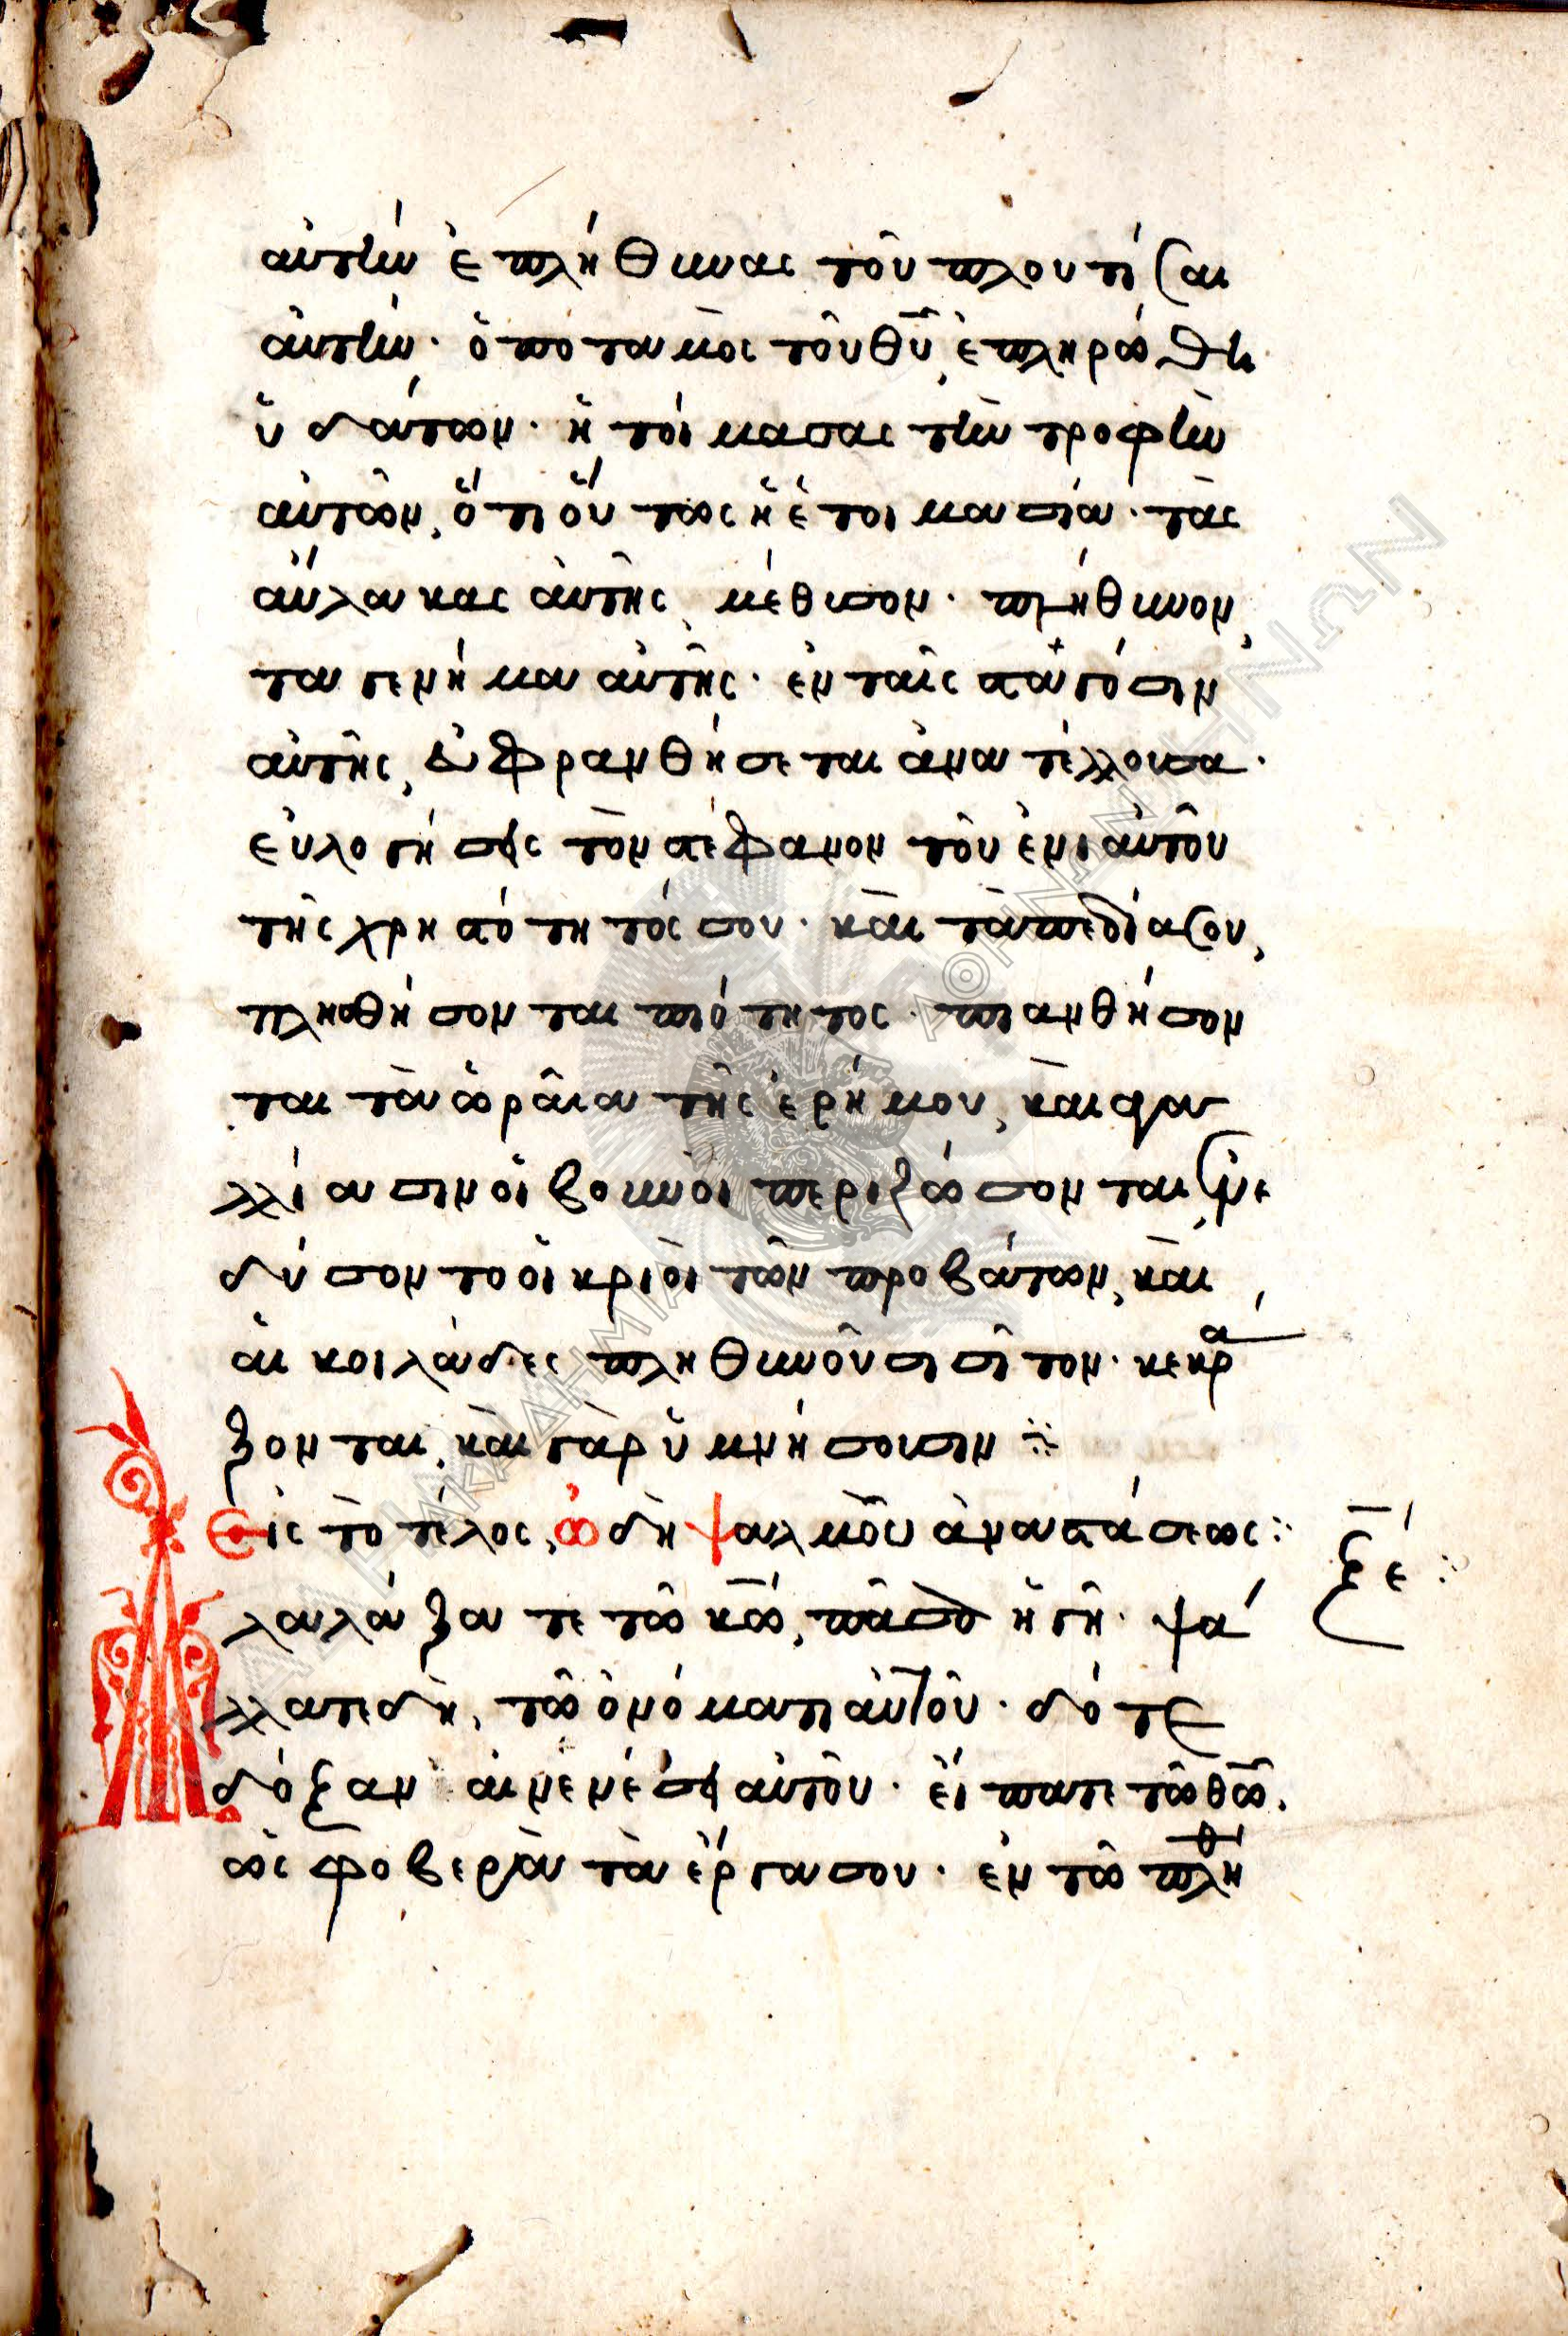 αὐτὴν ἐπλήθυνας τοῦ πλουτίσαι
αὐτήν· ὁ ποταμὸς τοῦ θῡ, ἐπληρώθη
ὑδάτων· ἡτοίμασας τὴν τροφὴν
αὐτῶν, ὅτι οὕτως ἡ ἑτοιμασία· τὰς
αὔλακας αὐτῆς, μέθυσον· πλήθυνον,
τα γενήματα αὐτῆς· ἐν ταῖς σταγόσιν
αὐτῆς, εὐφρανθήσεται ἀνατέλλουσα·
εὐλογήσεις τὸν στέφανον τοῦ ἐνιαυτοῦ
τῆς χρηστότητός σου· καὶ τὰ πεδία σου,
πλησθήσονται πιότητος· πιανθήσον
ται τὰ ὡραῖα τῆς ἐρήμου, καὶ ἀγα
λλίασιν οἱ βουνοὶ περιζώσονται· ἐνε
δύσοντο οἱ κριοὶ τῶν προβάτων, καὶ
αἱ κοιλάδες πληθυνοῦσι σῖτον· κεκρά
ξονται, καὶ γὰρ ὑμνήσουσιν ⁘
Εἰς τὸ τέλος, ὠδὴ ψαλμοῦ ἀναστάσεως:
ξέ :
Ἀλαλάξατε τῶ κω̄, πᾶσα ἡ γῆ· ψά
λλατε δὴ, τῶ ὀνόματι αὐτοῦ· δότε
δόξαν αἰνέσει αὐτοῦ· εἴπατε τῶ θω̄.
ὡς φοβερὰ τὰ ἔργα σου· ἐν τῶ πλήθ